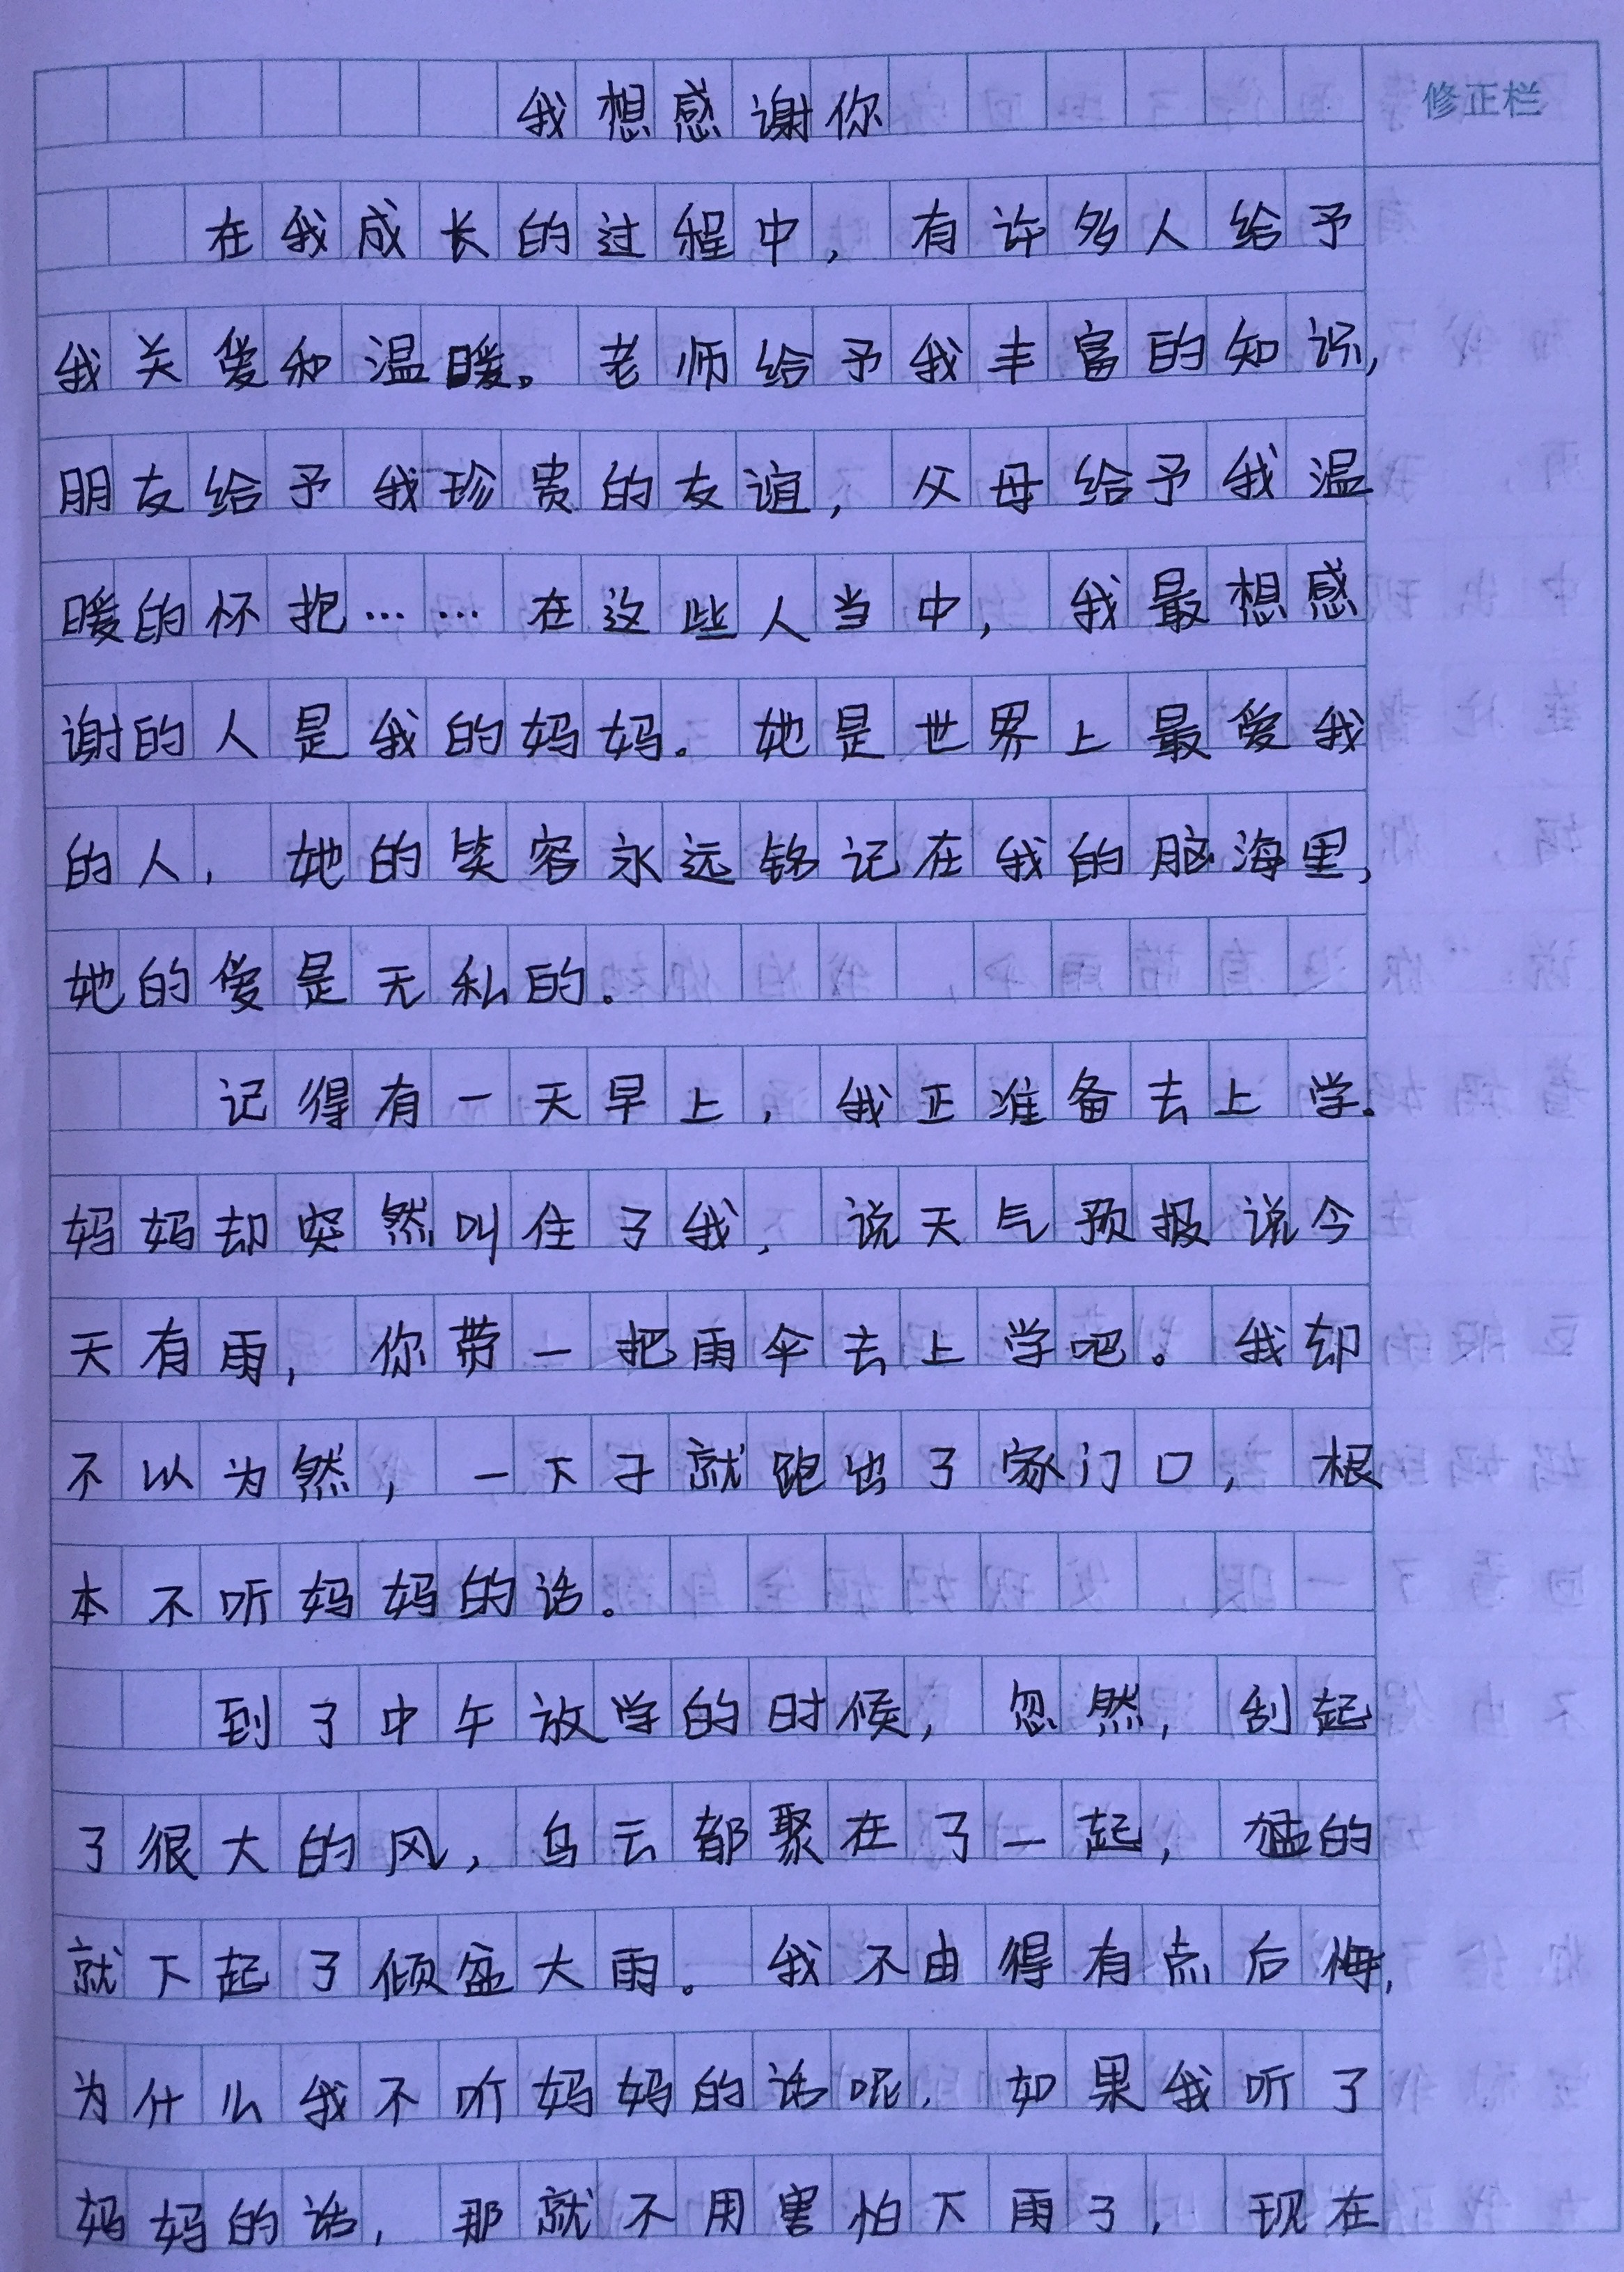 我想感谢你
修正栏
在我成长的过程中，有许多人给予
我关爱和温暖。老师给予我丰富的知识，
朋友给予我珍贵的友谊，父母给予我温
暖的怀抱……在这些人当中，我最想感
谢的人是我的妈妈。她是世界上最爱我
的人，她的笑容永远铭记在我的脑海里，
她的爱是无私的。
记得有一天早上，我正准备去上学。
妈妈却突然叫住了我，说天气预报说今
天有雨，你带一把雨伞去上学吧。我却
不以为然，一下子就跑出了家门口，根
本不听妈妈的话。
到了中午放学的时候，忽然，刮起
了很大的风，乌云都聚在了一起，猛的
就下起了倾盆大雨。我不由得有点后悔，
为什么我不听妈妈的话呢，如果我听了
妈妈的话，那就不用害怕下雨了，现在